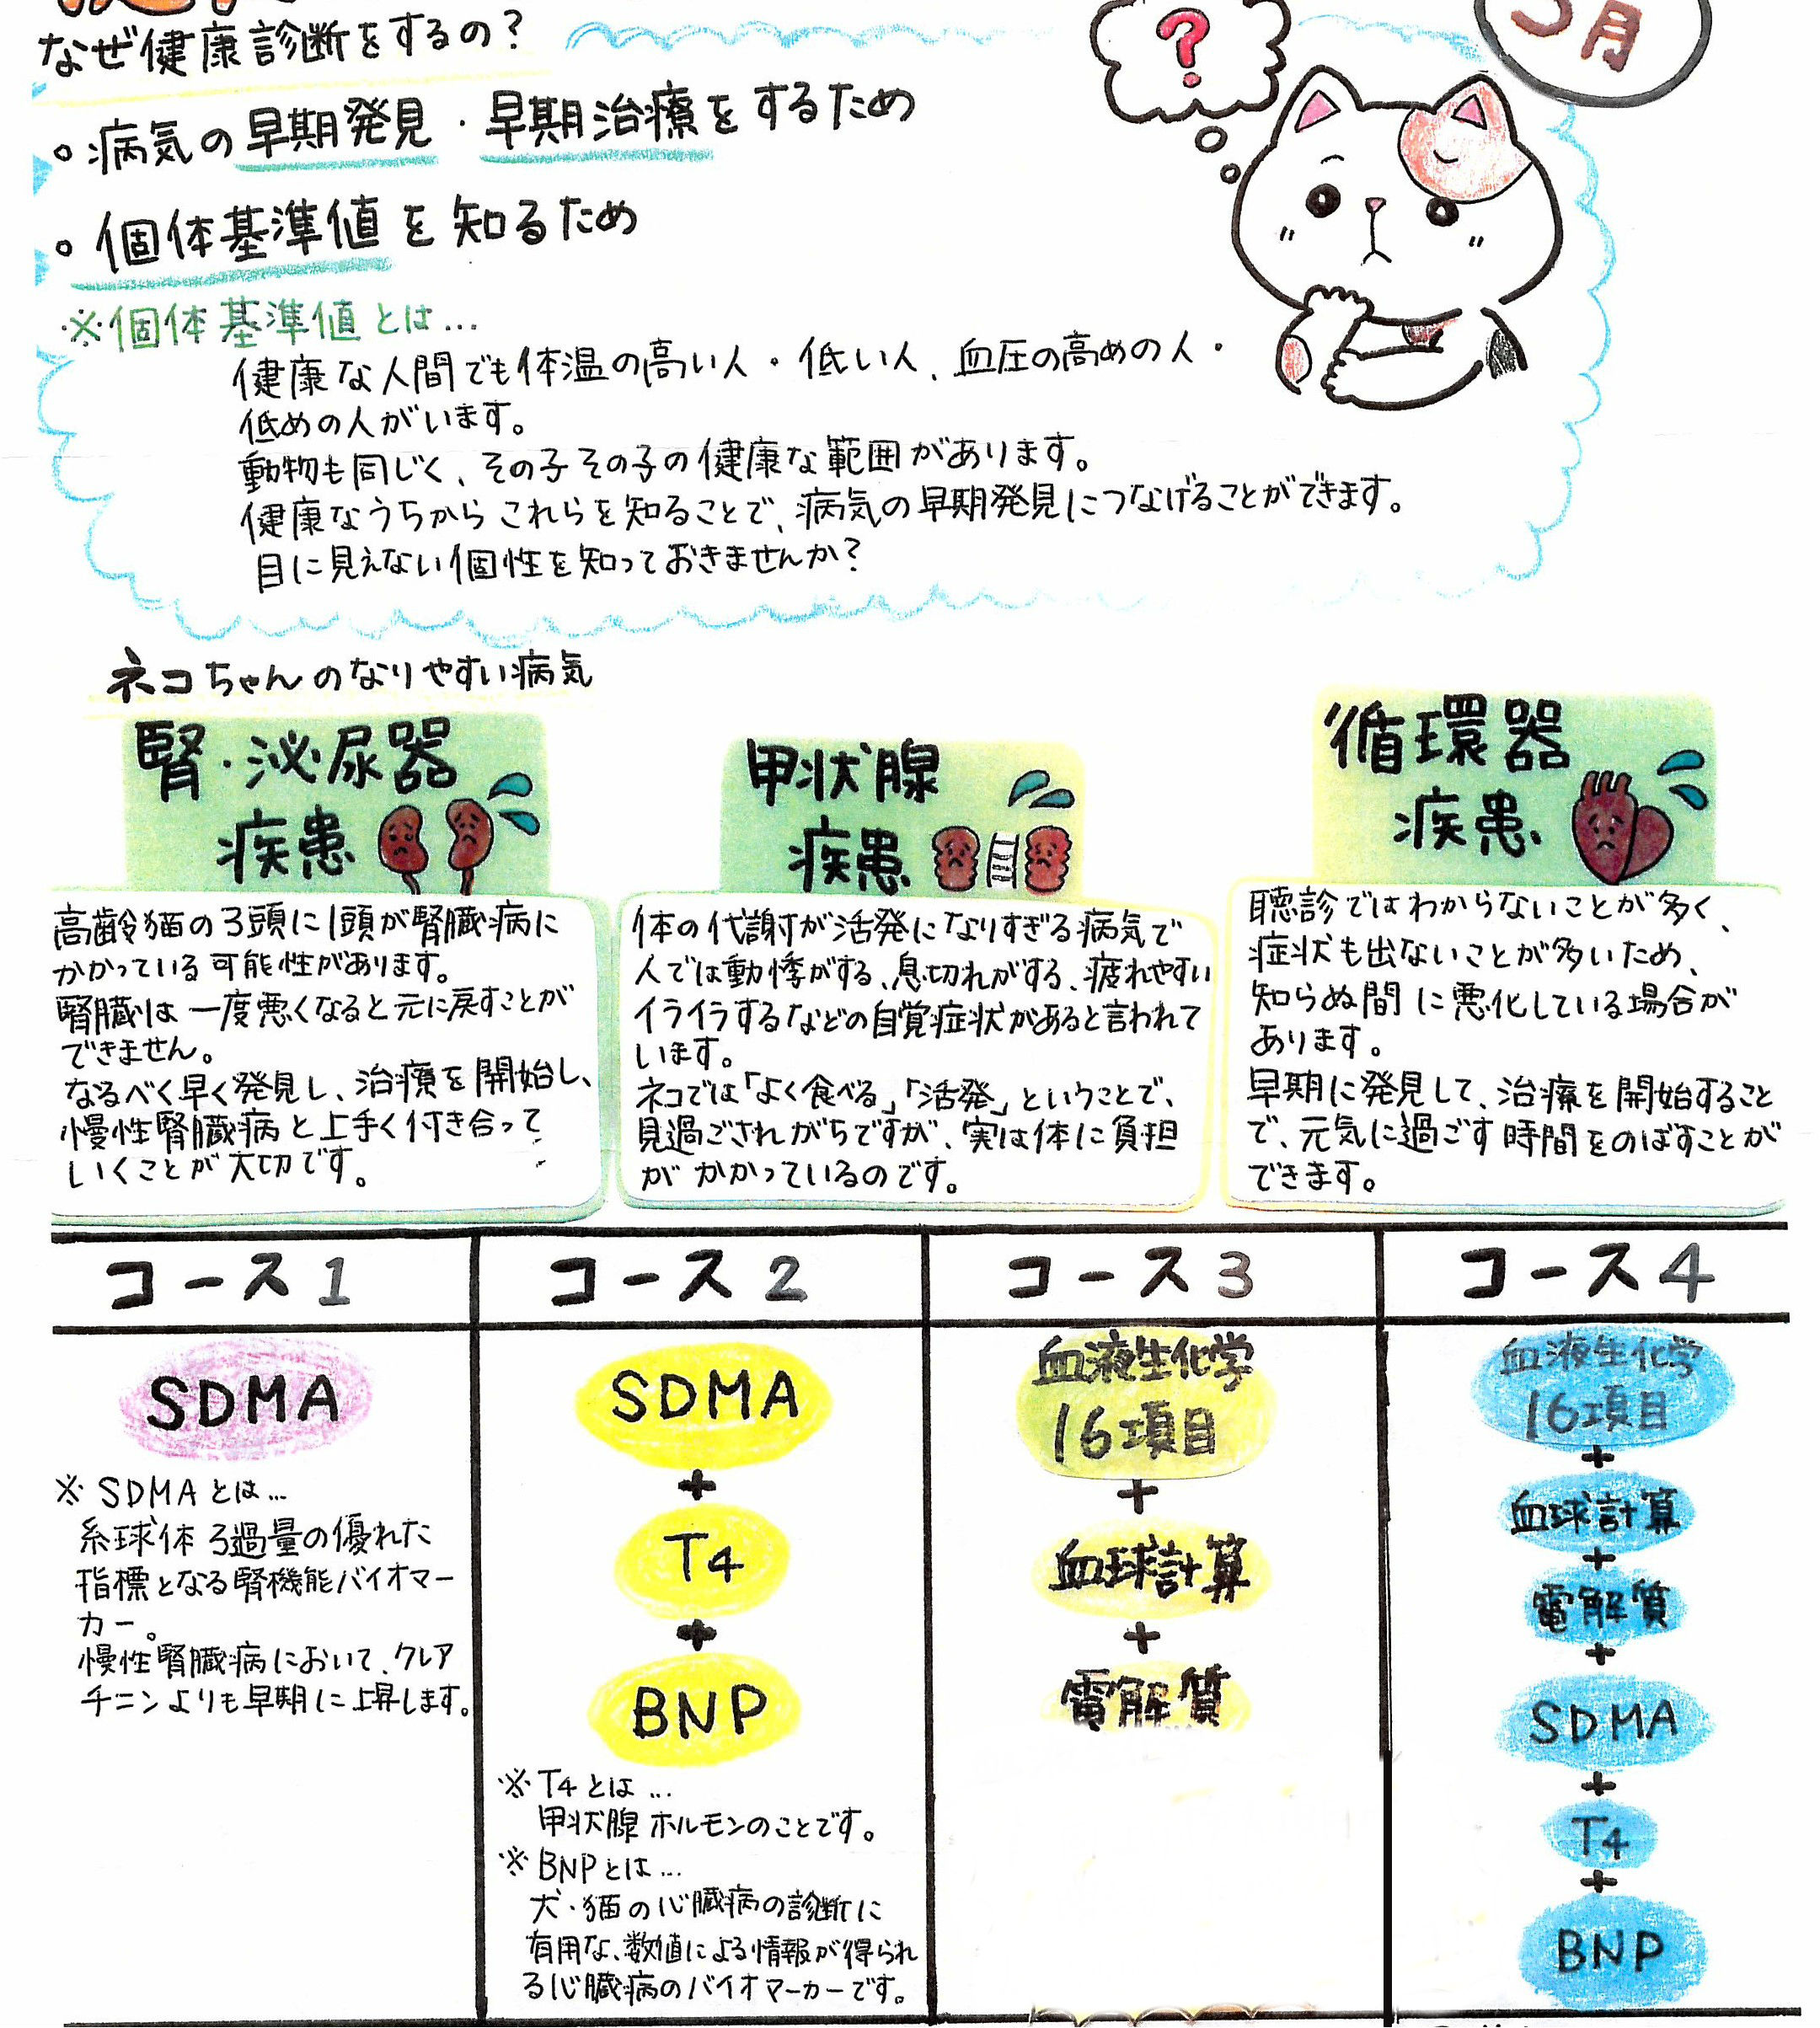 なぜ健康診断をするの?
5月
?
○病気の早期発見・早期治療をするため
○個体基準値を知るため
※個体基準値とは…
健康な人間でも体温の高い人・低い人、血圧の高めの人・
低めの人がいます。
動物も同じく、その子その子の健康な範囲があります。
健康なうちからこれらを知ることで、病気の早期発見につなげることができます。
目に見えない個性を知っておきませんか?
ネコちゃんのなりやすい病気
腎・泌尿器
疾患
高齢猫の3頭に1頭が腎臓病に
かかっている可能性があります。
腎臓は一度悪くなると元に戻すことが
できません。
なるべく早く発見し、治療を開始し、
慢性腎臓病と上手く付き合って
いくことが大切です。
甲状腺
疾患
体の代謝が活発になりすぎる病気で
人では動悸がする、息切れがする、疲れやすい
イライラするなどの自覚症状があると言われて
います。
ネコでは「よく食べる」「活発」ということで、
見過ごされがちですが、実は体に負担
がかかっているのです。
循環器
疾患
聴診ではわからないことが多く、
症状も出ないことが多いため、
知らぬ間に悪化している場合が
あります。
早期に発見して、治療を開始すること
で、元気に過ごす時間をのばすことが
できます。
コース1
SDMA
※SDMAとは…
糸球体ろ過量の優れた
指標となる腎機能バイオマー
カー。
慢性腎臓病において、クレア
チニンよりも早期に上昇します。
コース2
SDMA
+
T4
+
BNP
※T4とは…
甲状腺ホルモンのことです。
※BNPとは…
犬・猫の心臓病の診断に
有用な、数値による情報が得られ
る心臓病のバイオマーカーです。
コース3
血液生化学
16項目
+
血球計算
+
電解質
コース4
血液生化学
16項目
+
血球計算
+
電解質
+
SDMA
+
T4
+
BNP